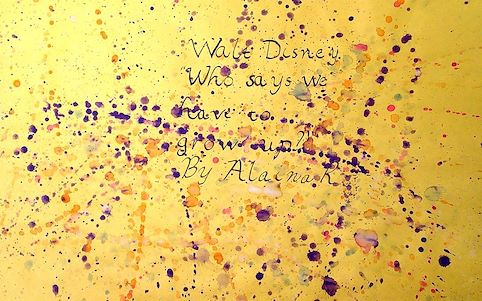 Walt Disney
Who says we
have to
grow up?
By Alaina K